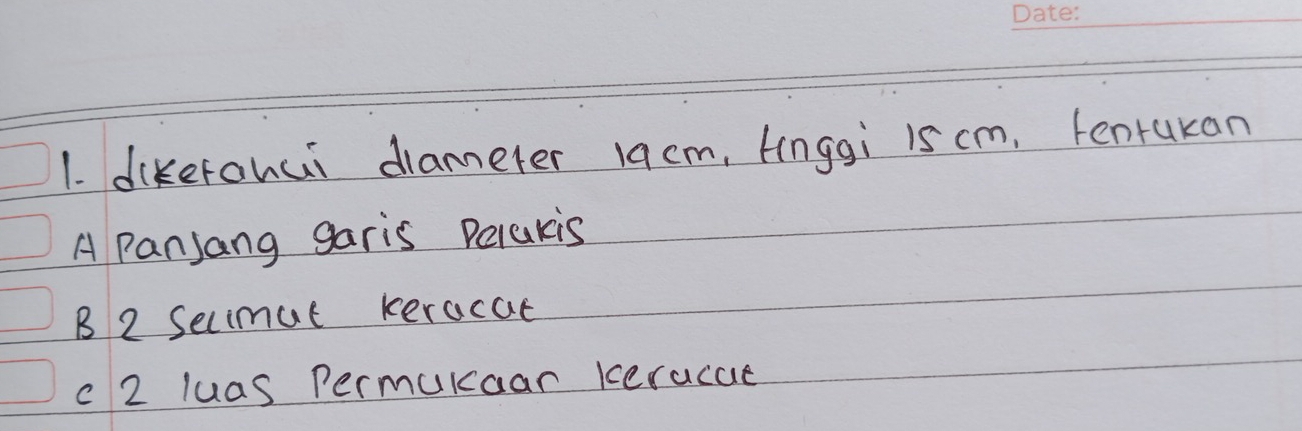 Date:
1. diketahui diameter 14 cm, tinggi 15 cm, tentukan
A Panjang garis Pelukis
B 2 Selimut kerucut
C 2 luas Permukaan kerucut